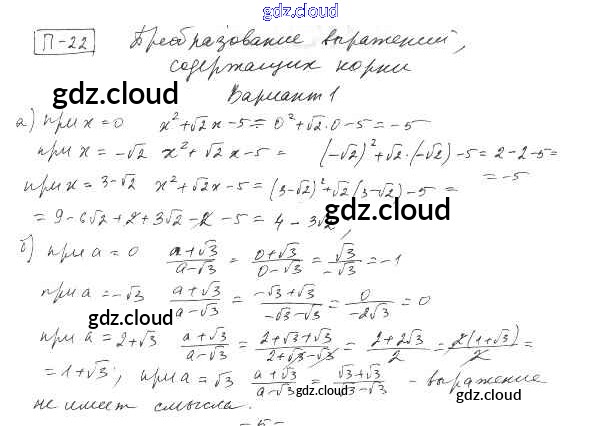 gdz.cloud
П-22 Преобразование выражений,
содержащих корни
gdz.cloud
Вариант 1
а) при x = 0 x² + √2 x - 5 = 0² + √2 · 0 - 5 = -5
при x = -√2 x² + √2 x - 5 = (-√2)² + √2 · (-√2) - 5 = 2 - 2 - 5 =
= -5
при x = 3 - √2 x² + √2 x - 5 = (3 - √2)² + √2 (3 - √2) - 5 =
= 9 - 6√2 + 2 + 3√2 - 2 - 5 = 4 - 3√2,
gdz.cloud
б) при a = 0 (a + √3)/(a - √3) = (0 + √3)/(0 - √3) = √3/(-√3) = -1
gdz.cloud
при a = -√3 (a + √3)/(a - √3) = (-√3 + √3)/(-√3 - √3) = 0/(-2√3) = 0
gdz.cloud
при a = 2 + √3 (a + √3)/(a - √3) = (2 + √3 + √3)/(2 + √3 - √3) = (2 + 2√3)/2 = 2(1 + √3)/2 =
= 1 + √3; при a = √3 (a + √3)/(a - √3) = (√3 + √3)/(√3 - √3) - выражение
gdz.cloud
не имеет смысла.
gdz.cloud
- 5 -